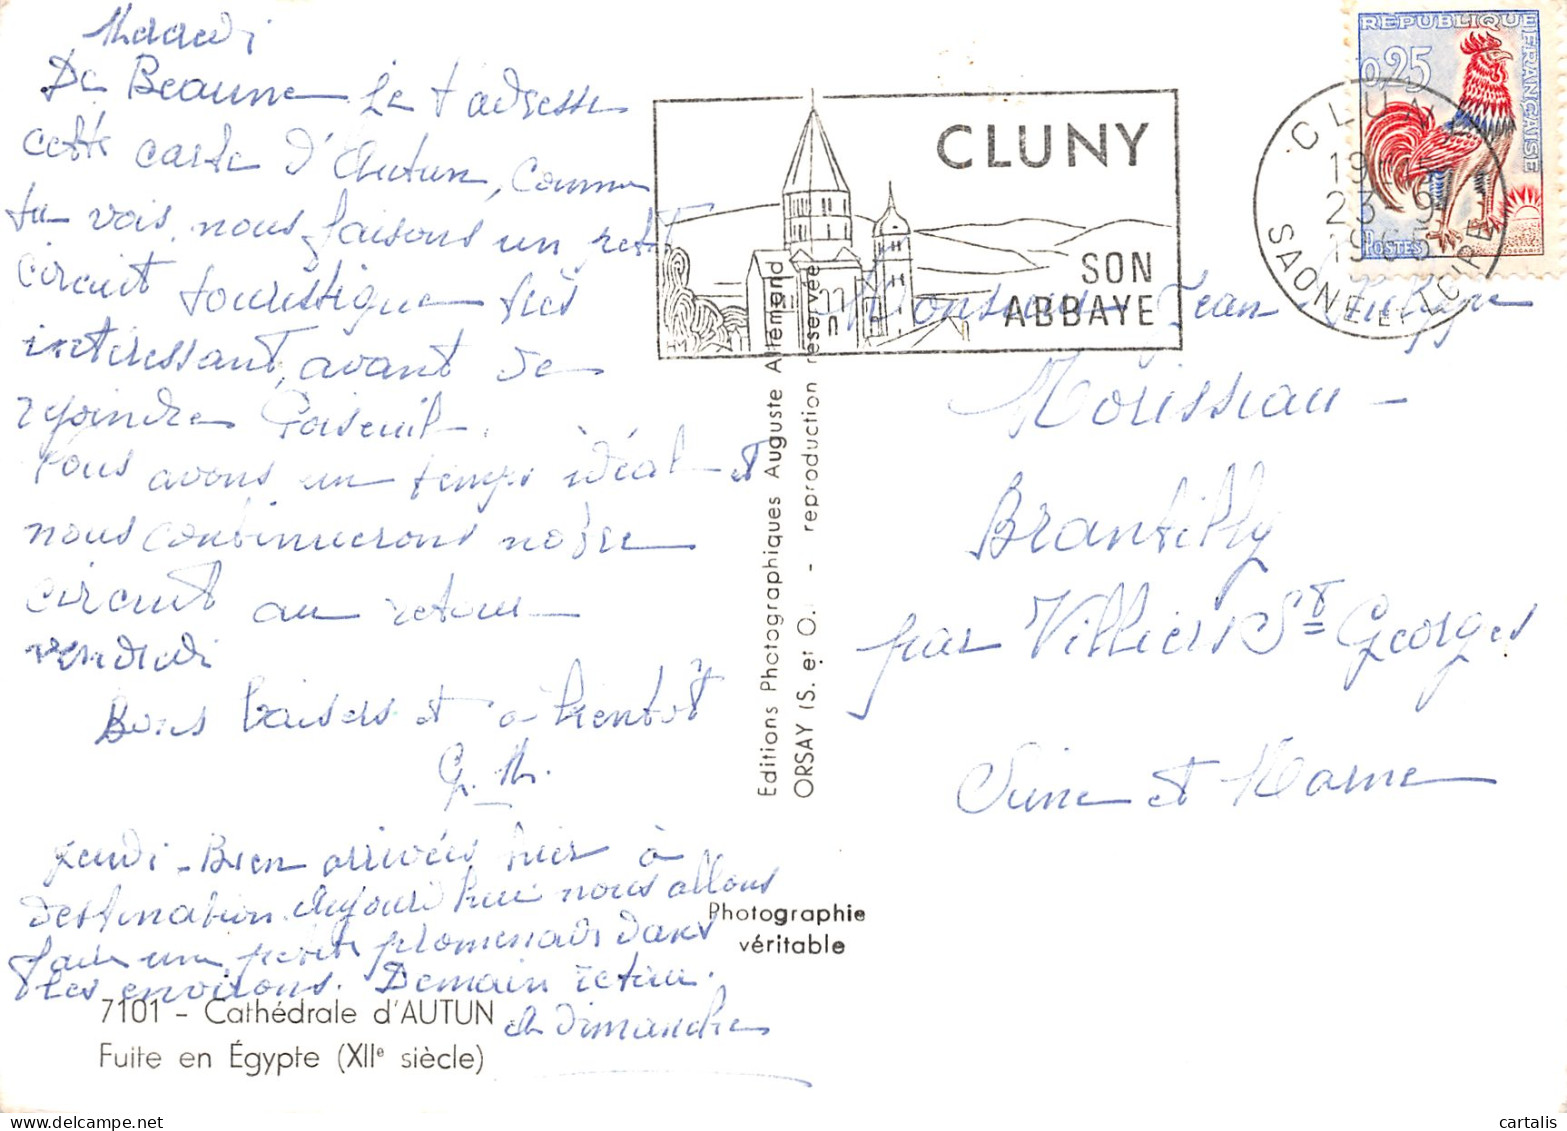 Mardi
De Beaune je t'adresse
cette carte d'Autun, comme
tu vois, nous faisons un
circuit touristique très
intéressant, avant de
rejoindre
avons un temps idéal et
nous continuerons notre
circuit au retour
vendredi
Bons baisers et à bientôt
G. M.
Jeudi - Bien arrivées hier à
destination. Aujourd'hui nous allons
faire une petite promenade dans
les environs. Demain retour.
à dimanche
7101 - Cathédrale d'AUTUN
Fuite en Égypte (XIIe siècle)
Editions Photographiques Auguste Allemand
ORSAY (S. et O.) - reproduction réservée
Photographie
véritable
CLUNY
SON
ABBAYE
CLUNY
19H15
23-9
1965
SAONE ET LOIRE
REPUBLIQUE FRANÇAISE
0,25
POSTES
Monsieur Jean
Morisseau -
Brantilly
par Villiers St Georges
Seine et Marne
cartalis